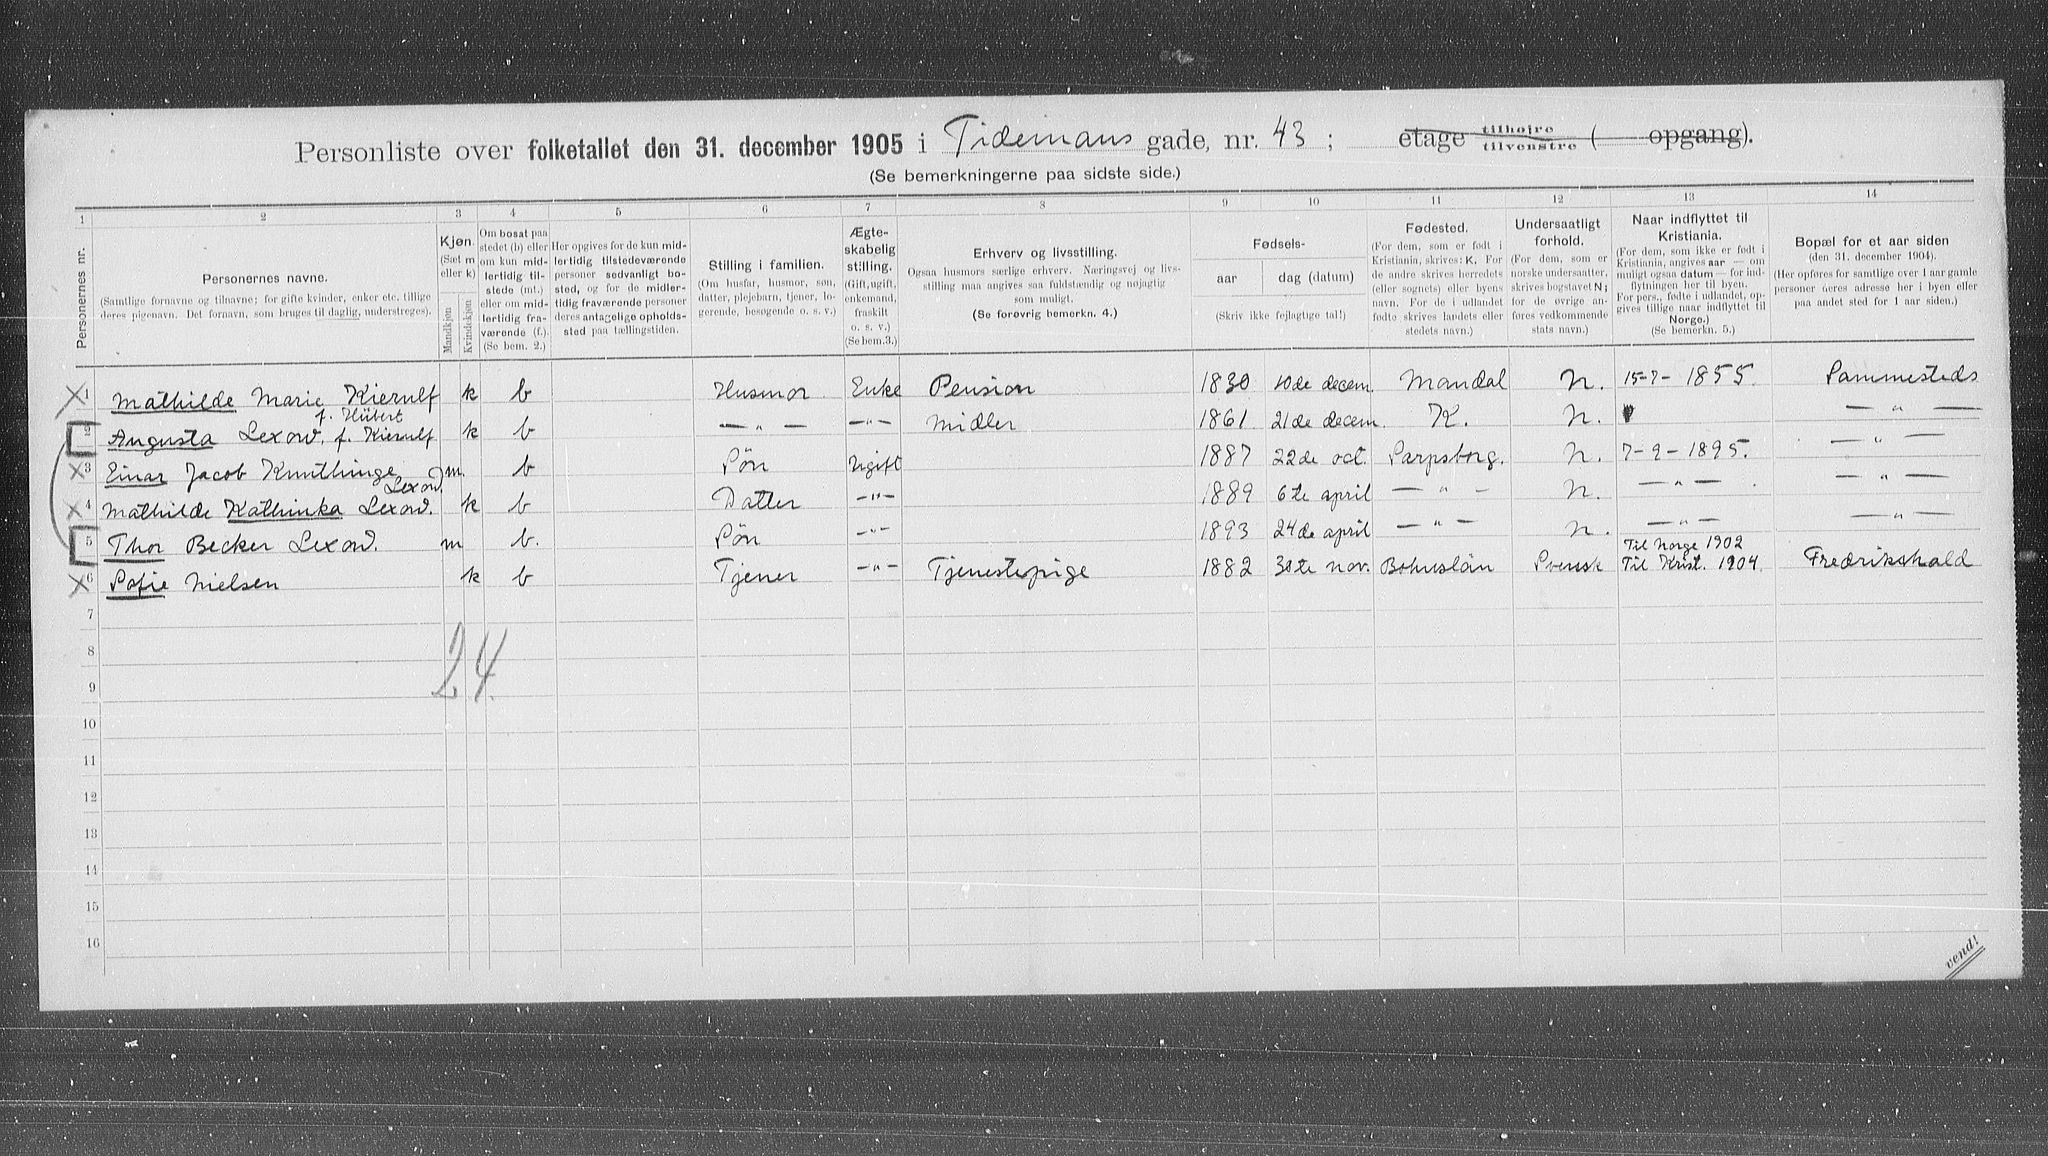 Personliste over folketallet den 31. december 1905 i Tidemans gade, nr. 43; etage tilhøjre tilvenstre ( opgang).
(Se bemerkningerne paa sidste side.)
1 2 3 4 5 6 7 8 9 10 11 12 13 14
Personernes nr.
Personernes navne.
(Samtlige fornavne og tilnavne; for gifte kvinder, enker etc. tillige
deres pigenavn. Det fornavn, som bruges til daglig, understreges).
Kjøn.
(Sæt m
eller k)
Mandkjøn
Kvindekjøn
Om bosat paa
stedet (b) eller
om kun mid-
lertidig til-
stede (mt.)
eller om mid-
lertidig fra-
værende (f.).
(Se bem. 2.)
Her opgives for de kun mid-
lertidig tilstedeværende
personer sedvanligt bo-
sted, og for de midler-
tidig fraværende personer
deres antagelige opholds-
sted paa tællingstiden.
Stilling i familien.
(Om husfar, husmor, søn,
datter, plejebarn, tjener, lo-
gerende, besøgende o. s. v.)
Ægte-
skabelig
stilling.
(Gift, ugift,
enkemand,
fraskilt
o. s. v.)
(Se bem.3.)
Erhverv og livsstilling.
Ogsaa husmors særlige erhverv. Næringsvej og livs-
stilling maa angives saa fuldstændig og nøjagtig
som muligt.
(Se forøvrig bemerkn. 4.)
Fødsels-
aar
dag (datum)
(Skriv ikke fejlagtige tal!)
Fødested.
(For dem, som er født i
Kristiania, skrives: K. For
de andre skrives herredets
(eller sognets) eller byens
navn. For de i udlandet
fødte skrives landets eller
stedets navn.)
Undersaatligt
forhold.
(For dem, som er
norske undersaatter,
skrives bogstavet N;
for de øvrige an-
føres vedkommende
stats navn.)
Naar indflyttet til
Kristiania.
(For dem, som ikke er født i
Kristiania, angives aar — om
muligt ogsaa datum — for ind-
flytningen her til byen.
For pers., fødte i udlandet, op-
gives tillige naar indflyttet til
Norge.)
(Se bemerkn. 5.)
Bopæl for et aar siden
(den 31. december 1904).
(Her opføres for samtlige over 1 aar gamle
personer deres adresse her i byen eller
paa andet sted for 1 aar siden.)
1 Mathilde Marie Kierulf f. Hübert k b Husmor Enke Pension 1830 10de decem. Mandal N. 15-7-1855. Sammesteds
2 Augusta Lexow, f. Kierulf k b — " — — " — Midler 1861 21de decem. K. N. — " —
3 Einar Jacob Knuthinge Lexow. m. b Søn Ugift 1887 22de oct. Sarpsborg. N. 7-9-1895. — " —
4 Mathilde Kathinka Lexow. k b Datter — " — 1889 6te april — " — N. — " — — " —
5 Thor Becker Lexow. m b. Søn — " — 1893 24de april — " — N. — " — — " —
6 Sofie Nielsen k b Tjener — " — Tjenestepige 1882 30te nov. Bohuslän Svensk Til Norge 1902 Til Krist. 1904. Fredrikshald
7
8
24.
9
10
11
12
13
14
15
16
vend!